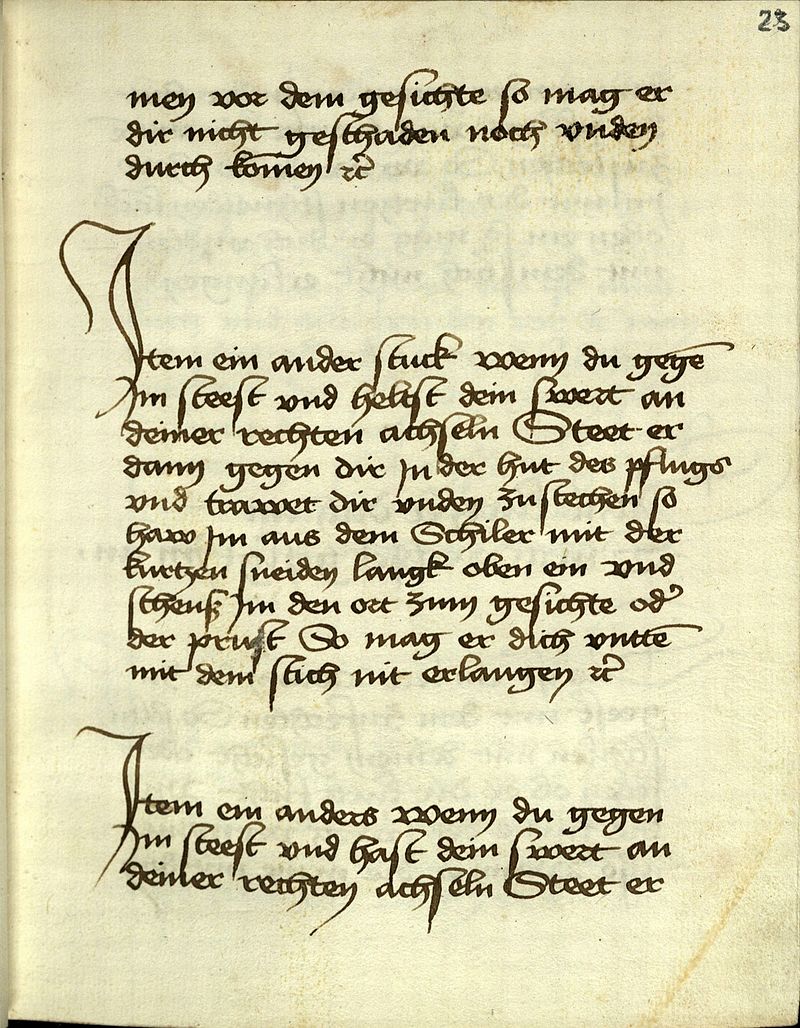 23
men vor dem gesichte so mag er
dir nicht geschaden noch vnden
durch kom̄en ꝛc̃
Item ein ander stuck wenn du gegē
Im steest vnd heltst dein swert an
deiner rechten achseln Steet er
dann gegen dir In der hut des pflugs
vnd trawet dir vnden zu stechen so
haw Im aus dem Schiler mit der
kurtzen sneiden langk oben ein vnd
scheuß Im den ort zum gesichte od̾
der prust So mag er dich vnttē
mit dem stich nit erlangen ꝛc̃
Item ein anders wenn du gegen
Im steest vnd hast dein swert an
deiner rechten achseln Steet er